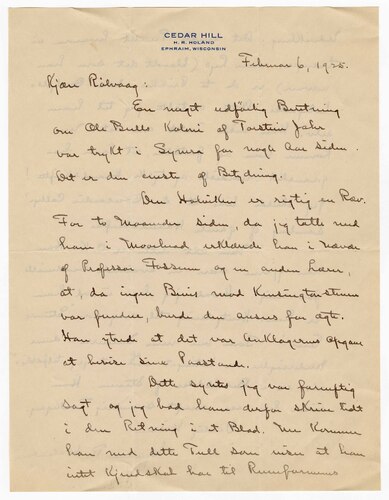 CEDAR HILL
H. R. HOLAND
EPHRAIM, WISCONSIN
Februar 6, 1925.
Kjære Rölvaag:
En meget udförlig Beretning
om Ole Bulls Koloni af Torstein Jahr
var trykt i Symra for nogle Aar siden.
Det er den eneste af Betydning.
Den Holvikken er rigtig en Rav.
For to Maaneder siden, da jeg talte med
ham i Moorhead erklærede han i Nærvær
af Professor Fossum og en anden Lærer,
at da ingen Bevis mod Kensingtonstenen
var fundne, burde den ansees for ægte.
Han ytrede at det var Anklagernes Opgave
at bevise sine Paastande.
Dette syntes jeg var fornuftig
sagt, og jeg bad ham derfor skrive lidt
i den Retning i et Blad. Nu kommer
han med dette Tull som viser at han
intet Kjendskab har til Runeformernes